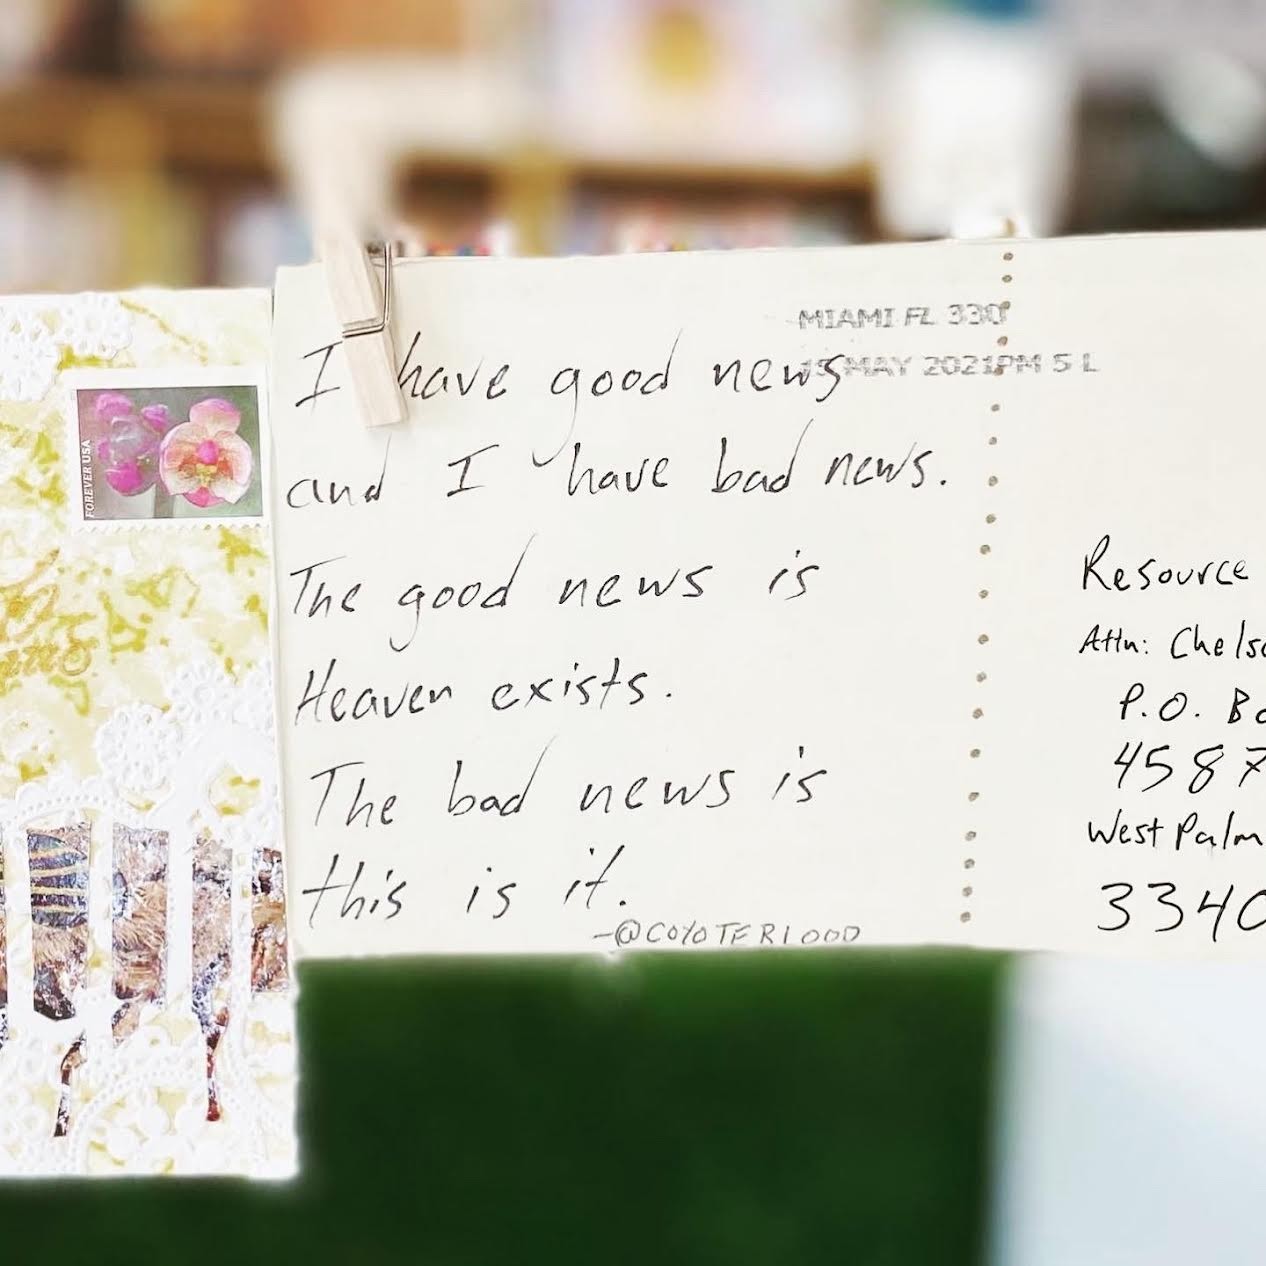 FOREVER USA
MIAMI FL 330
15 MAY 2021PM 5 L
I have good news
and I have bad news.
The good news is
Heaven exists.
The bad news is
this is it.
-@COYOTEBLOOD
Resource
Attn: Chels
P.O. Bo
4587
West Palm
3340